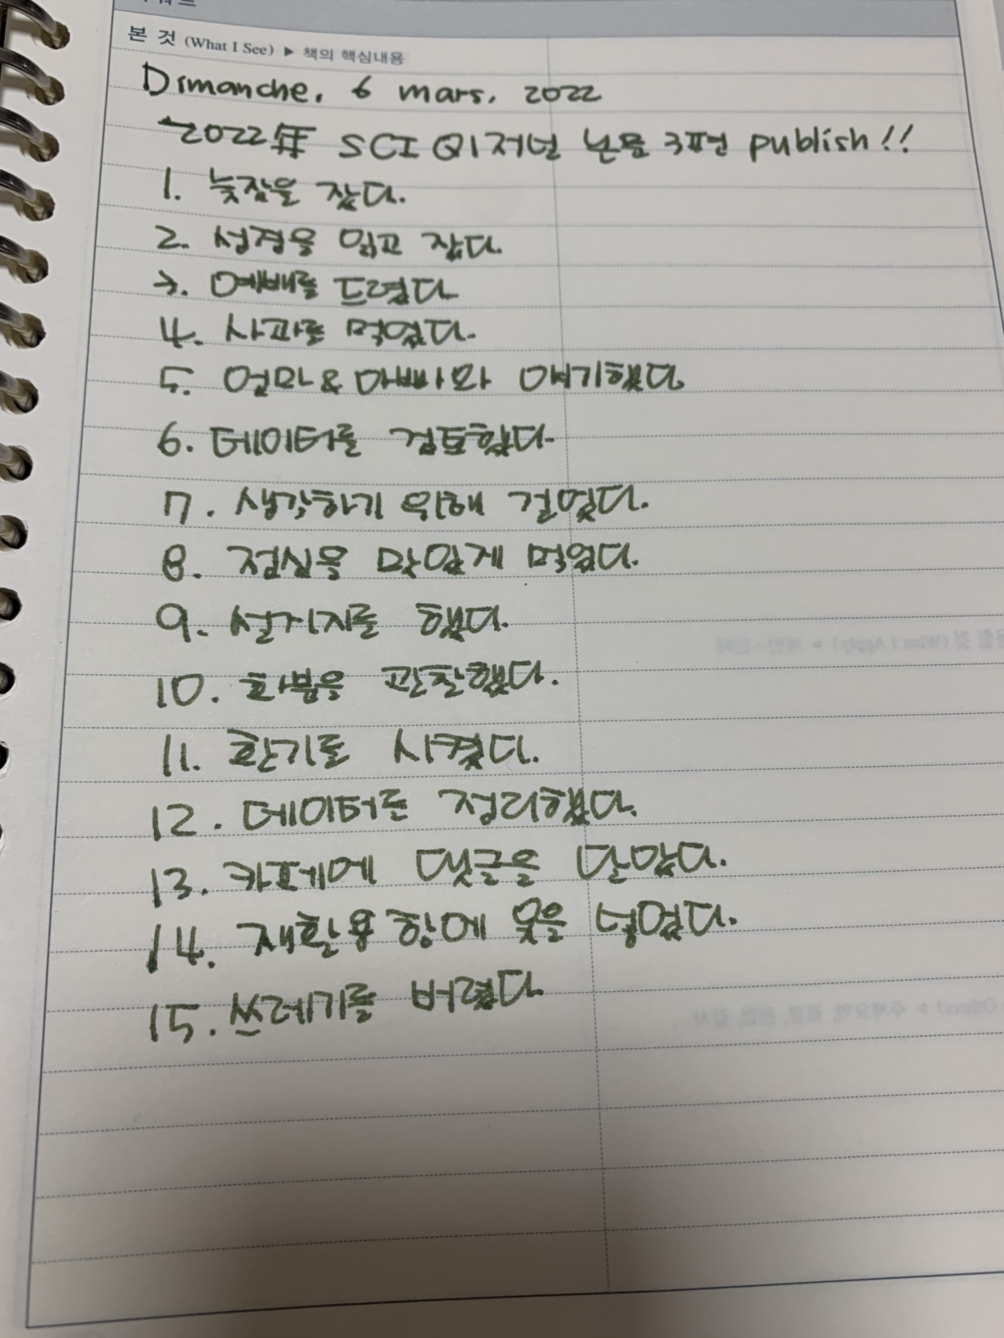 본 것 (What I See) ▶ 책의 핵심내용
Dimanche, 6 mars, 2022
2022年 SCI Q1 저널 논문 3편 publish!!
1. 늦잠을 잤다.
2. 성경을 읽고 잤다.
3. 예배를 드렸다
4. 사과를 먹었다.
5. 엄마 & 아빠와 얘기했다
6. 데이터를 검토했다.
7. 생각하기 위해 걸었다.
8. 점심을 맛있게 먹었다.
9. 설거지를 했다.
10. 화분을 관찰했다.
11. 환기를 시켰다.
12. 데이터를 정리했다.
13. 카페에 댓글을 달았다.
14. 재활용 함에 옷을 넣었다.
15. 쓰레기를 버렸다.